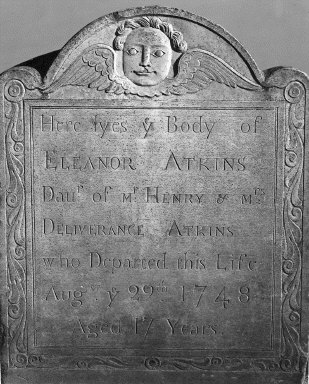 Here lyes yͤ Body of
ELEANOR ATKINS
Dauʳ of Mʳ HENRY & Mʳˢ
DELIVERANCE ATKINS
who Departed this Life
Augˢᵗ yͤ 29ᵗʰ 1748
Aged 17 Years.